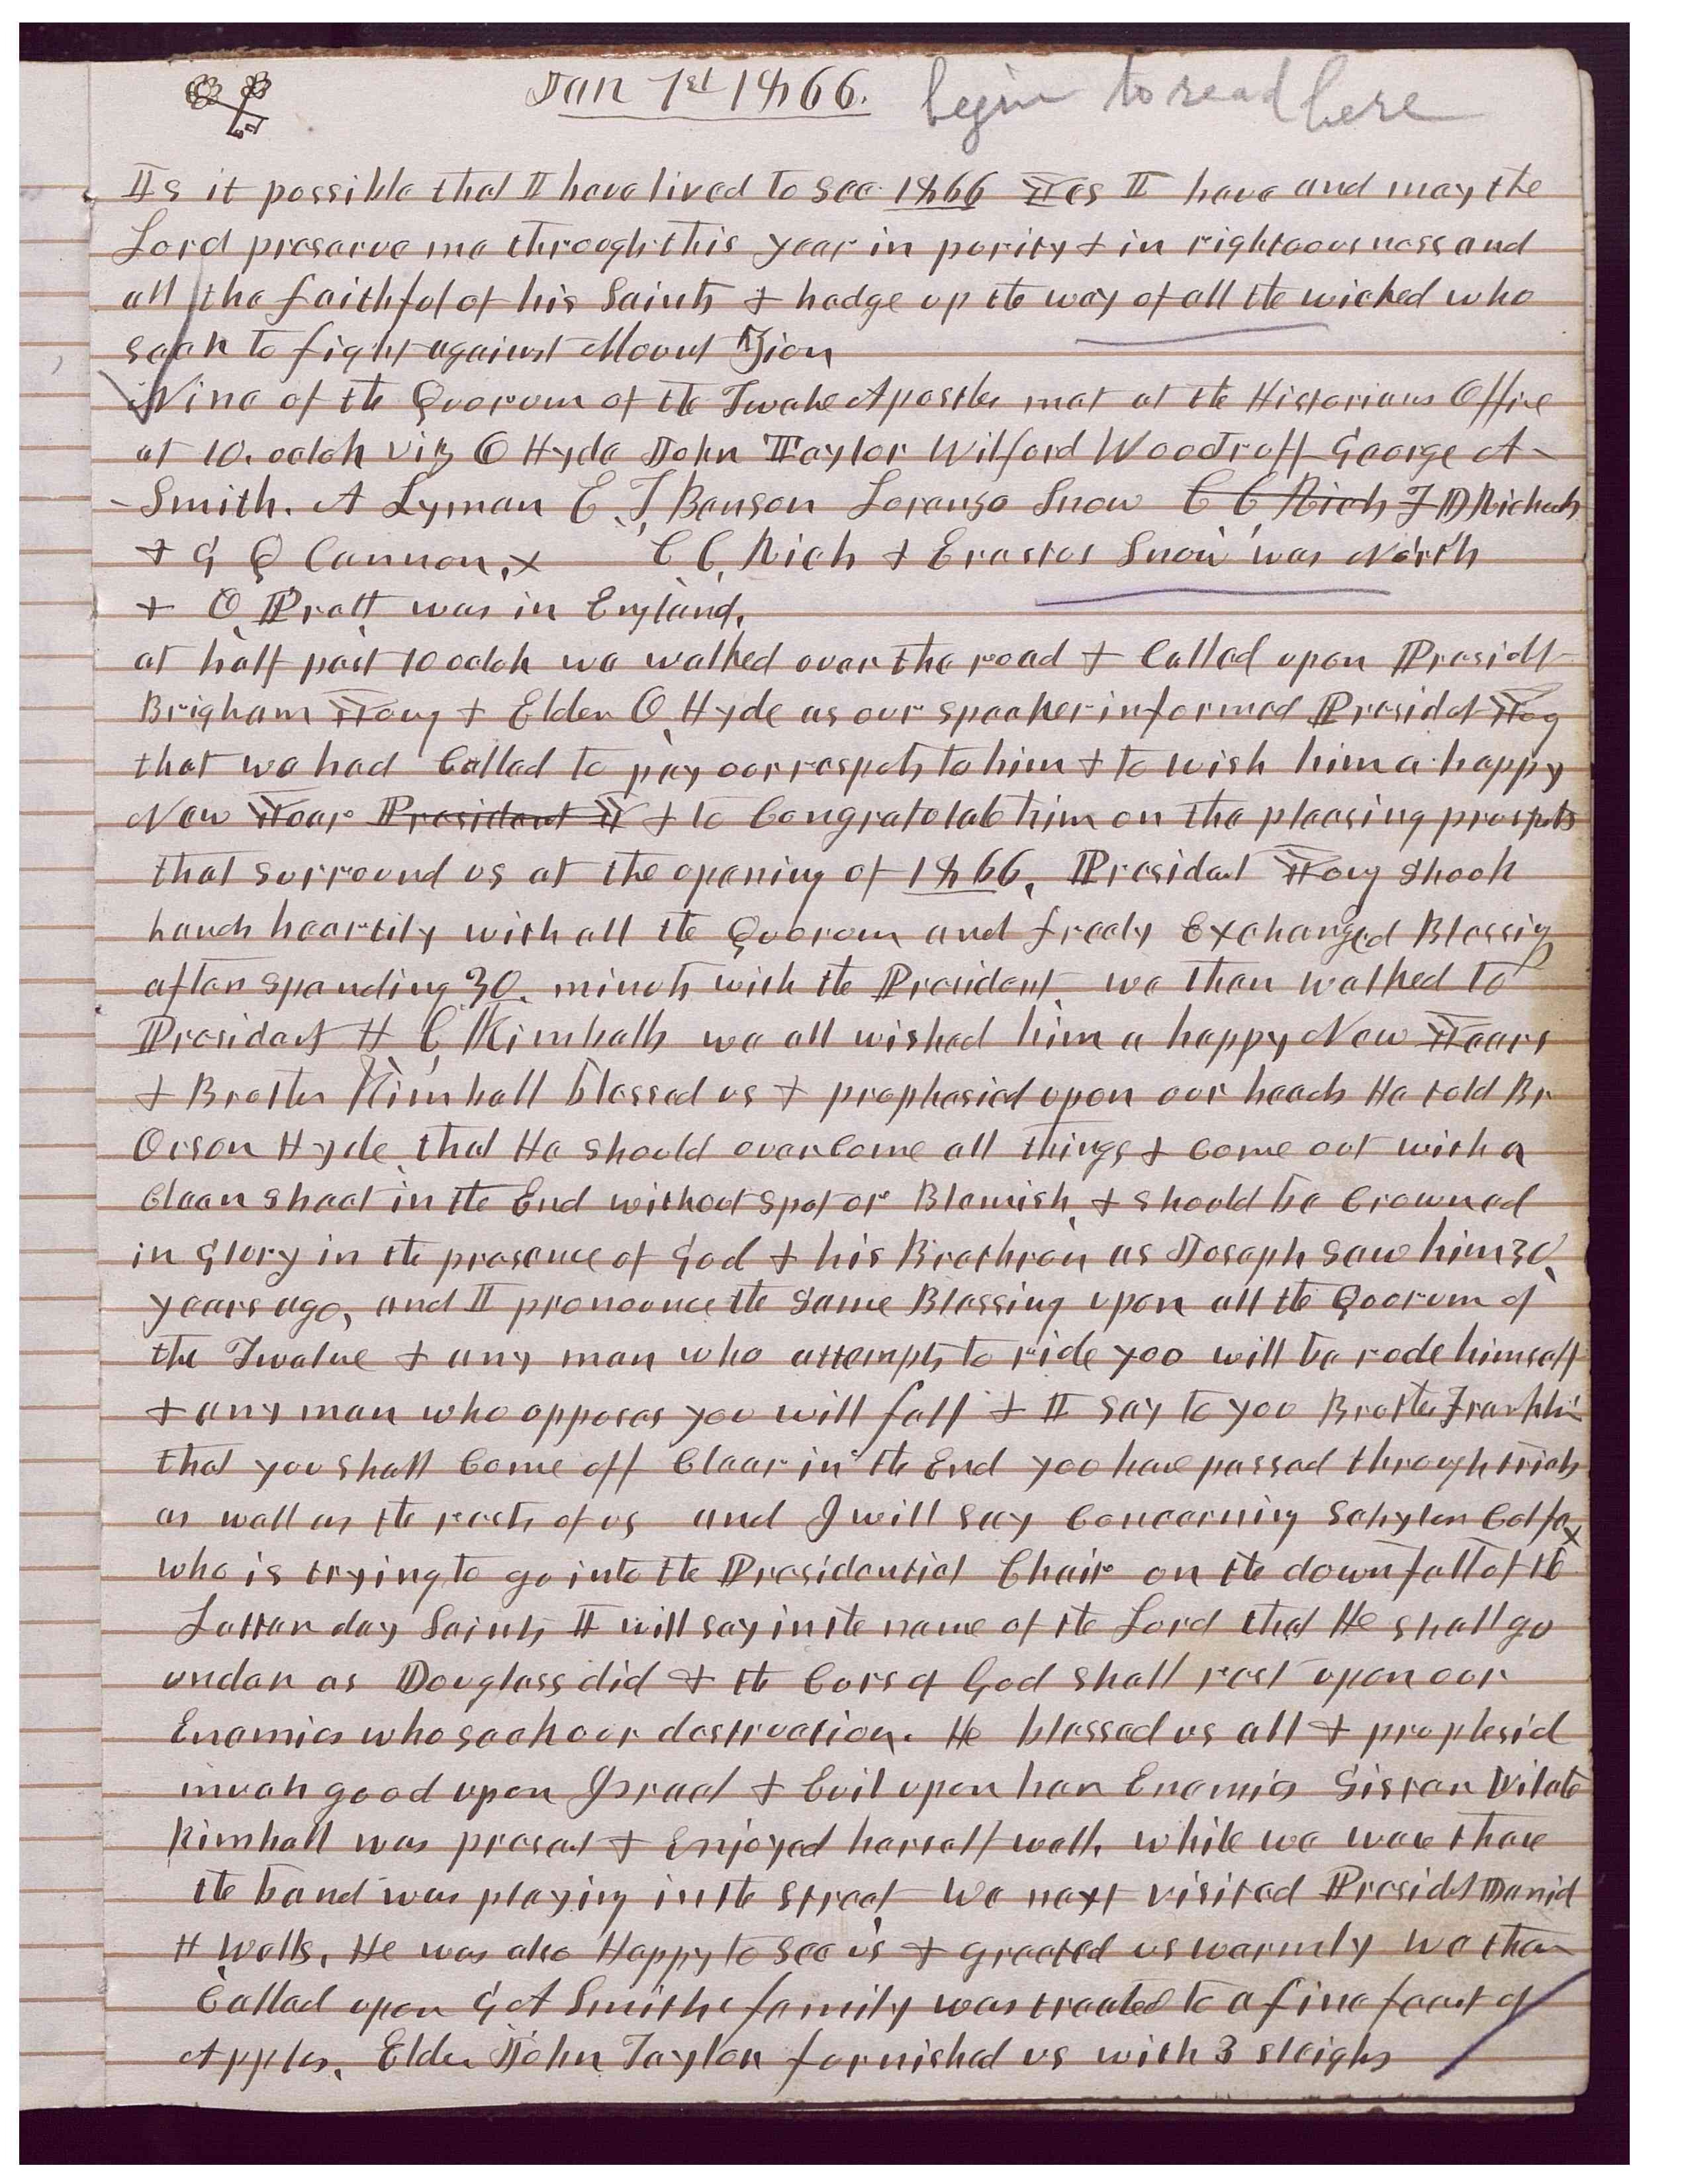 Jan 1st 1866. begin to read here
Is it possible that I have lived to see 1866 Yes I have and may the
Lord preserve me through this year in purity & in righteousness and
all the faithful of his Saints & hedge up the way of all the wicked who
seek to fight against Mount Zion
Nine of the Quorum of the Twelve Apostles met at the Historians Office
at 10. oclok viz O Hyde John Taylor Wilford Woodruff George A-
-Smith. A Lyman E. T. Benson Loranzo Snow C C Rich F D Richads
& G Q Cannon, x C C, Rich & Erastus Snow was North
& O Pratt was in England,
at half past 10 oclok we walked over the road & Called upon Presidt
Brigham Youg & Elder O, Hyde as our speaker informed Presidet Yog
that we had Called to pay our respets to him & to wish him a happy
New Year President Y & to Congratulate him on the pleasing prospets
that surround us at the opening of 1866, President Youg shook
hands heartily with all the Quorum and freely Exchanged Blessig
after spending 30. minuts with the President we then walked to
President H C, Kimballs we all wished him a happy New Years
& Brother Kimball blessed us & prophesied upon our heads He told Br
Orson Hyde, that He should over Come all things & Come out with a
Clean sheet in the End without spot or Blemish, & should be Crowned
in Glory in the presence of God & his Brethren as Joseph saw him 30,
years ago, and I pronounce the same Blessing upon all the Quorum of
the Twelve & any man who attempts to ride you will be rode himself
& any man who opposes you will fall & I say to you Brother Franklin
that you shall Come off Clear in the End you have passed through trials
as well as the rests of us and I will say Concerning Schyler Colfax
who is trying to go into the Presidential Chair on the downfall of the
Latter day Saints I will say in the name of the Lord that He shall go
under as Douglass did & the Curs of God shall rest upon our
Enemies who seek our destruction. He blessed us all & prophesid
much good upon Israel & Evil upon her Enemies Sister Vilate
Kimball was present & Enjoyed herself well, while we were there
the band was playing in the street We next visited Presidet Daniel
H Wells, He was also Happy to see us & greeted us warmly we then
Called upon G A Smiths family was treated to a fine feast of
Apples, Elder John Taylor furnished us with 3 sleighs